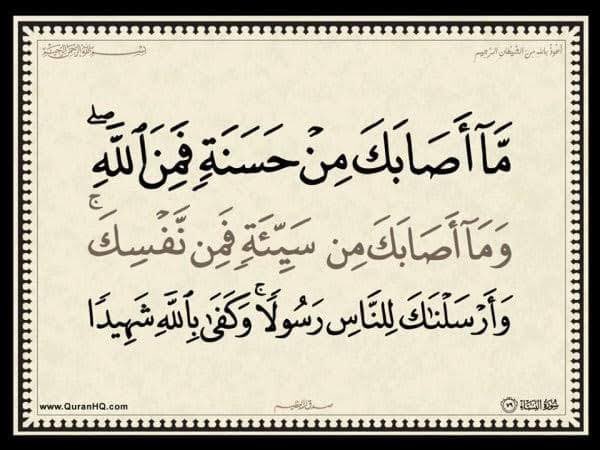 أعوذ بالله من الشيطان الرجيم
بسم الله الرحمن الرحيم
مَّآ أَصَابَكَ مِنْ حَسَنَةٍ فَمِنَ ٱللَّهِ ۖ
وَمَآ أَصَابَكَ مِن سَيِّئَةٍ فَمِن نَّفْسِكَ ۚ
وَأَرْسَلْنَٰكَ لِلنَّاسِ رَسُولًا ۚ وَكَفَىٰ بِٱللَّهِ شَهِيدًا
سورة النساء ٧٩
صدق الله العظيم
www.QuranHQ.com